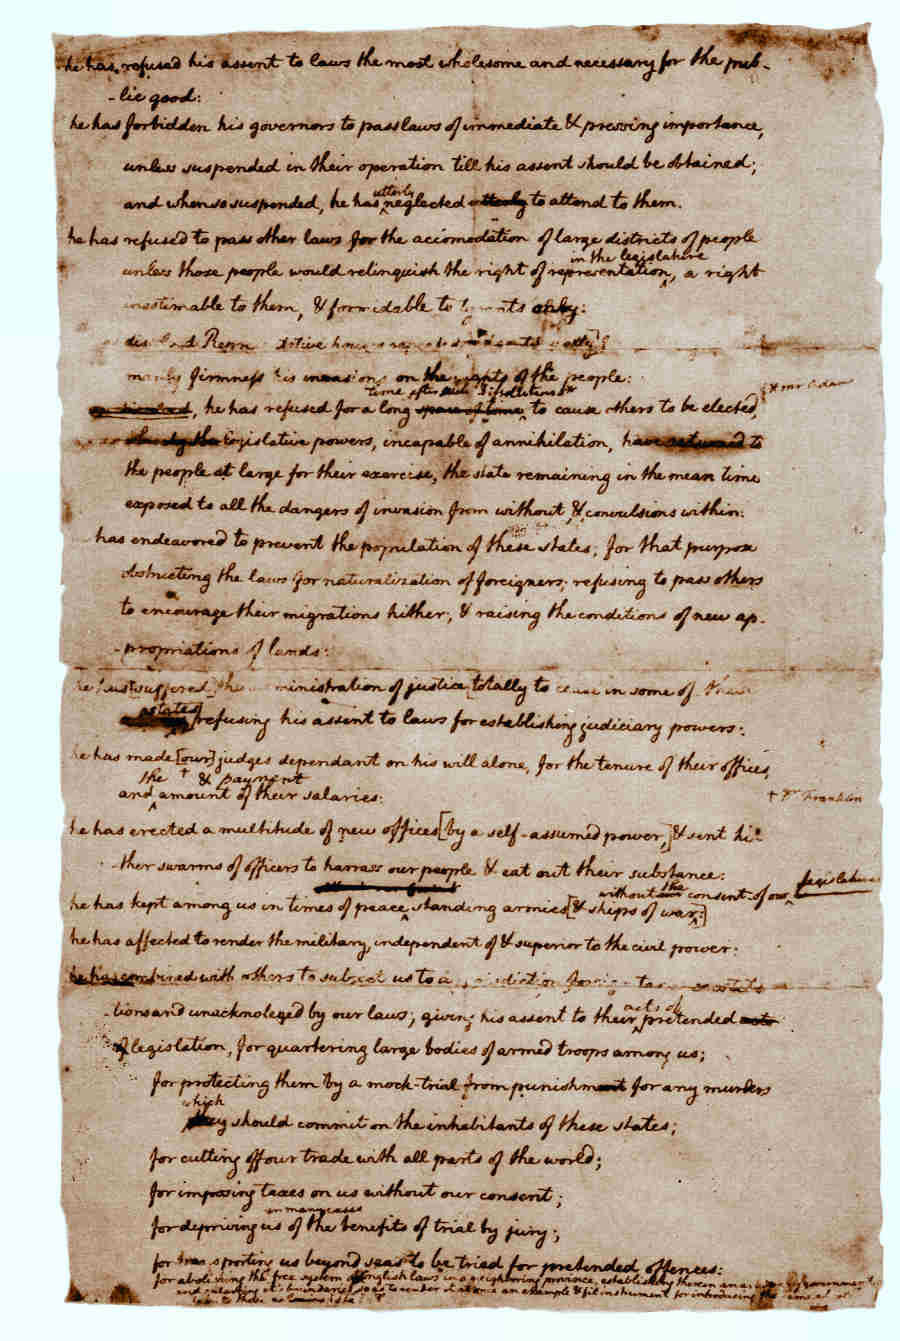 he has refused his assent to laws the most wholesome and necessary for the pub-
-lic good:
he has forbidden his governors to pass laws of immediate & pressing importance,
unless suspended in their operation till his assent should be obtained;
utterly
and when so suspended, he has neglected utterly to attend to them.
he has refused to pass other laws for the accomodation of large districts of people
in the legislature
unless those people would relinquish the right of representation, a right
inestimable to them, & formidable to tyrants only:
manly firmness his invasions on the rights of the people:
time after such dissolutions
& mr Adams
he has refused for a long space of time, to cause others to be elected,
whereby the legislative powers, incapable of annihilation, have returned to
the people at large for their exercise, the state remaining in the mean time
exposed to all the dangers of invasion from without & convulsions within:
has endeavored to prevent the population of these states; for that purpose
obstructing the laws for naturalization of foreigners; refusing to pass others
to encourage their migrations hither; & raising the conditions of new ap-
-propriations of lands:
he has suffered the administration of justice [totally to cease in some of these
states]
refusing his assent to laws for establishing judiciary powers:
he has made [our] judges dependant on his will alone, for the tenure of their offices,
the + & payment
and amount of their salaries:
+ Dr Franklin
he has erected a multitude of new offices [by a self-assumed power,] & sent hi-
-ther swarms of officers to harrass our people & eat out their substance:
without the consent of our legislatures
he has kept among us in times of peace standing armies [& ships of war:]
he has affected to render the military, independent of & superior to the civil power:
he has combined with others to subject us to a
-tions and unacknoleged by our laws; giving his assent to their pretended acts
acts of
of legislation, for quartering large bodies of armed troops among us;
for protecting them by a mock-trial from punishment for any murders
which
they should commit on the inhabitants of these states;
for cutting off our trade with all parts of the world;
for imposing taxes on us without our consent;
in many cases
for depriving us of the benefits of trial by jury;
for transporting us beyond seas to be tried for pretended offences:
for abolishing the free system of English laws in a neighboring province, establishing therein an government
and enlarging it's boundaries so as to render it at once an example & fit instrument for introducing the same